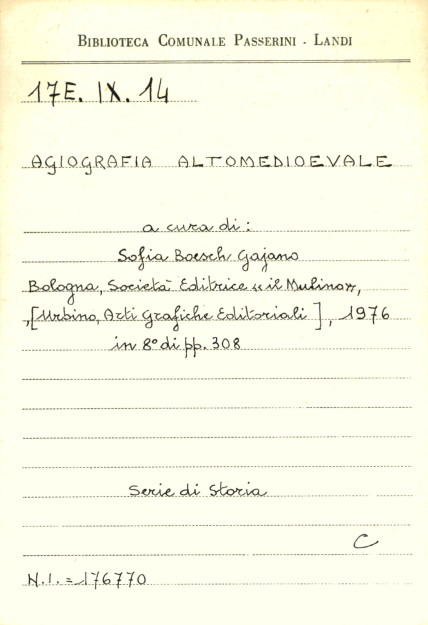 BIBLIOTECA COMUNALE PASSERINI - LANDI
17E. IX. 14
AGIOGRAFIA ALTOMEDIOEVALE
a cura di:
Sofia Boesch Gajano
Bologna, Società Editrice « il Mulino »,
,[Urbino, Arti Grafiche Editoriali], 1976
in 8° di pp. 308
Serie di Storia
C
N.I. = 176770